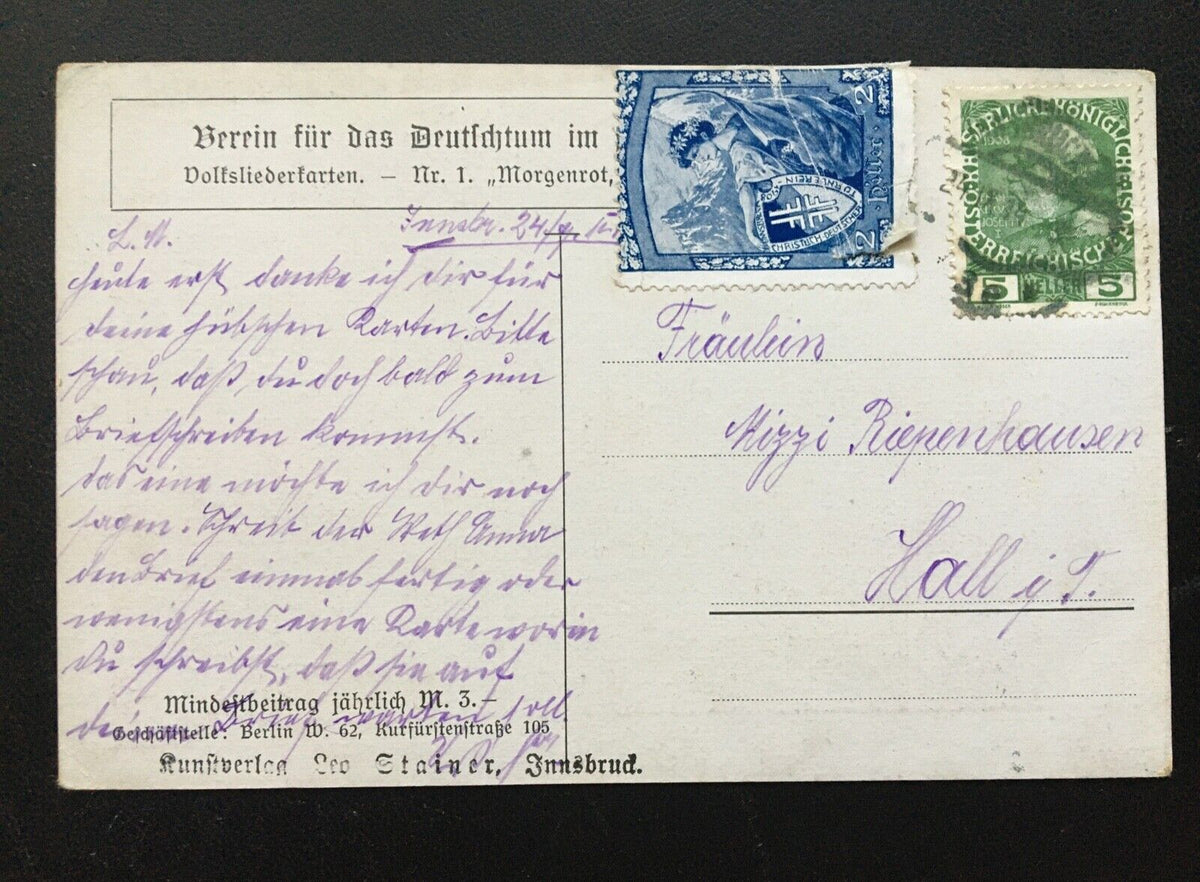 Verein für das Deutschtum im
Volksliederkarten. — Nr. 1. „Morgenrot,
Innsbr. 24/
L. M.
heute erst danke ich dir für
deine hübschen Karten. Bitte
schau, daß du doch bald zum
Briefschreiben kommst.
das eine möchte ich dir noch
sagen. Schreib der Anna
den Brief einmal fertig oder
wenigstens eine Karte worin
du schreibst, daß sie auf
deinen Brief warten soll.
Mindestbeitrag jährlich M. 3.—
Geschäftstelle: Berlin W. 62, Kurfürstenstraße 105
Kunstverlag Leo Stainer, Innsbruck.
2 Heller 2
CHRISTLICH DEUTSCHEN TURNVEREIN
KAISERLICHE KÖNIGLICHE ÖSTERREICHISCHE
1908
5 HELLER 5
Fräulein
Mizzi Riepenhausen
Hall i. T.